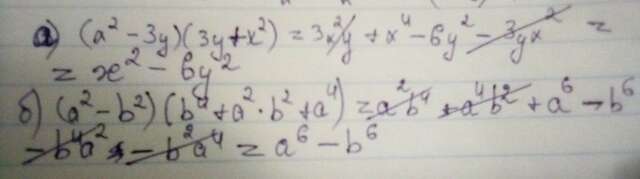 а) (a² - 3y)(3y + x²) = 3x²y + x⁴ - 6y² - 3yx² =
= x² - 6y²
б) (a² - b²)(b⁴ + a² · b² + a⁴) = a²b⁴ + a⁴b² + a⁶ - b⁶
- b⁴a² - b²a⁴ = a⁶ - b⁶